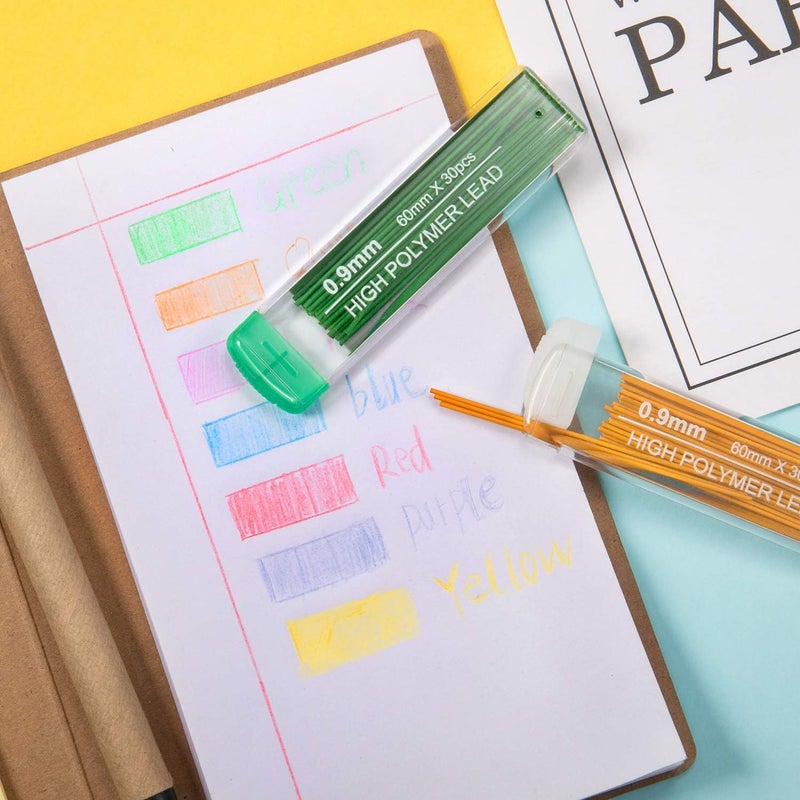 PA
Green
60mm X 30pcs
0.9mm
HIGH POLYMER LEAD
blue
Red
purple
Yellow
0.9mm
60mm X
HIGH POLYMER